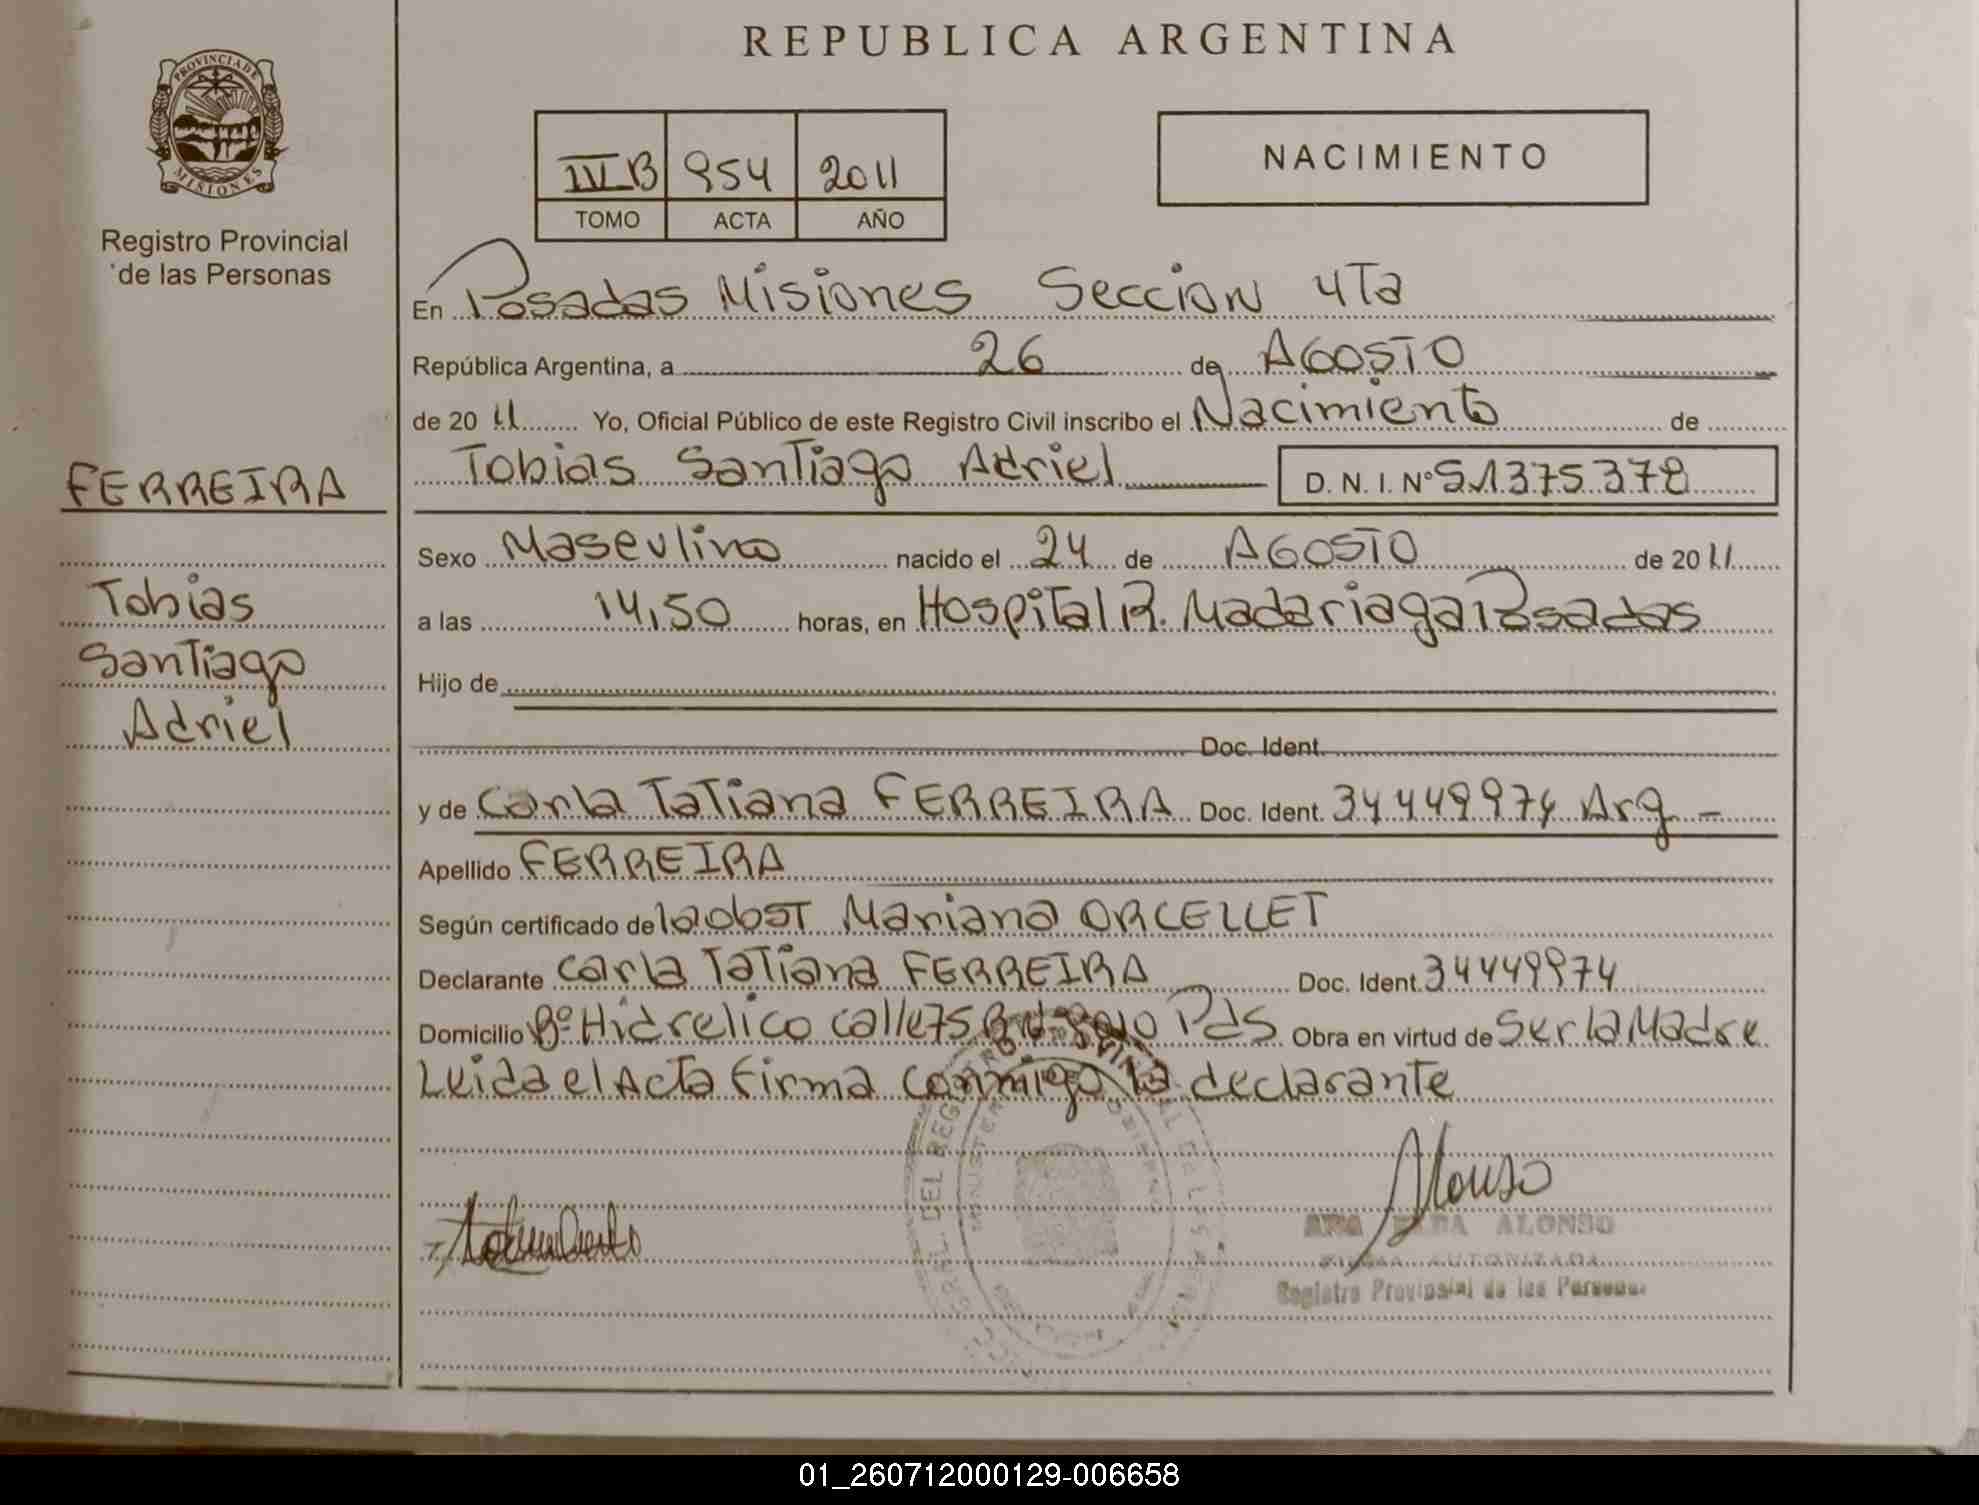 REPUBLICA ARGENTINA
PROVINCIA DE
MISIONES
Registro Provincial
de las Personas
IV B 954 2011
TOMO ACTA AÑO
NACIMIENTO
En Posadas Misiones Seccion 4Ta
República Argentina, a 26 de AGOSTO
de 2011 Yo, Oficial Público de este Registro Civil inscribo el Nacimiento de
Tobias Santiago Adriel D. N. I. Nº 51375378
FERREIRA
Tobias
Santiago
Adriel
Sexo Masculino nacido el 24 de AGOSTO de 2011
a las 14,50 horas, en Hospital R. Madariaga Posadas
Hijo de
Doc. Ident.
y de Carla Tatiana FERREIRA Doc. Ident. 34449974 Arg -
Apellido FERREIRA
Según certificado de Mariana ORCELLET
Declarante Carla Tatiana FERREIRA Doc. Ident. 34449974
Domicilio Bº Hidrelico calle 75 Pds Obra en virtud de Ser la Madre
Leida el Acta firma conmigo la declarante
Alonso
ALONSO
Registro Provincial de las Personas
01_260712000129-006658